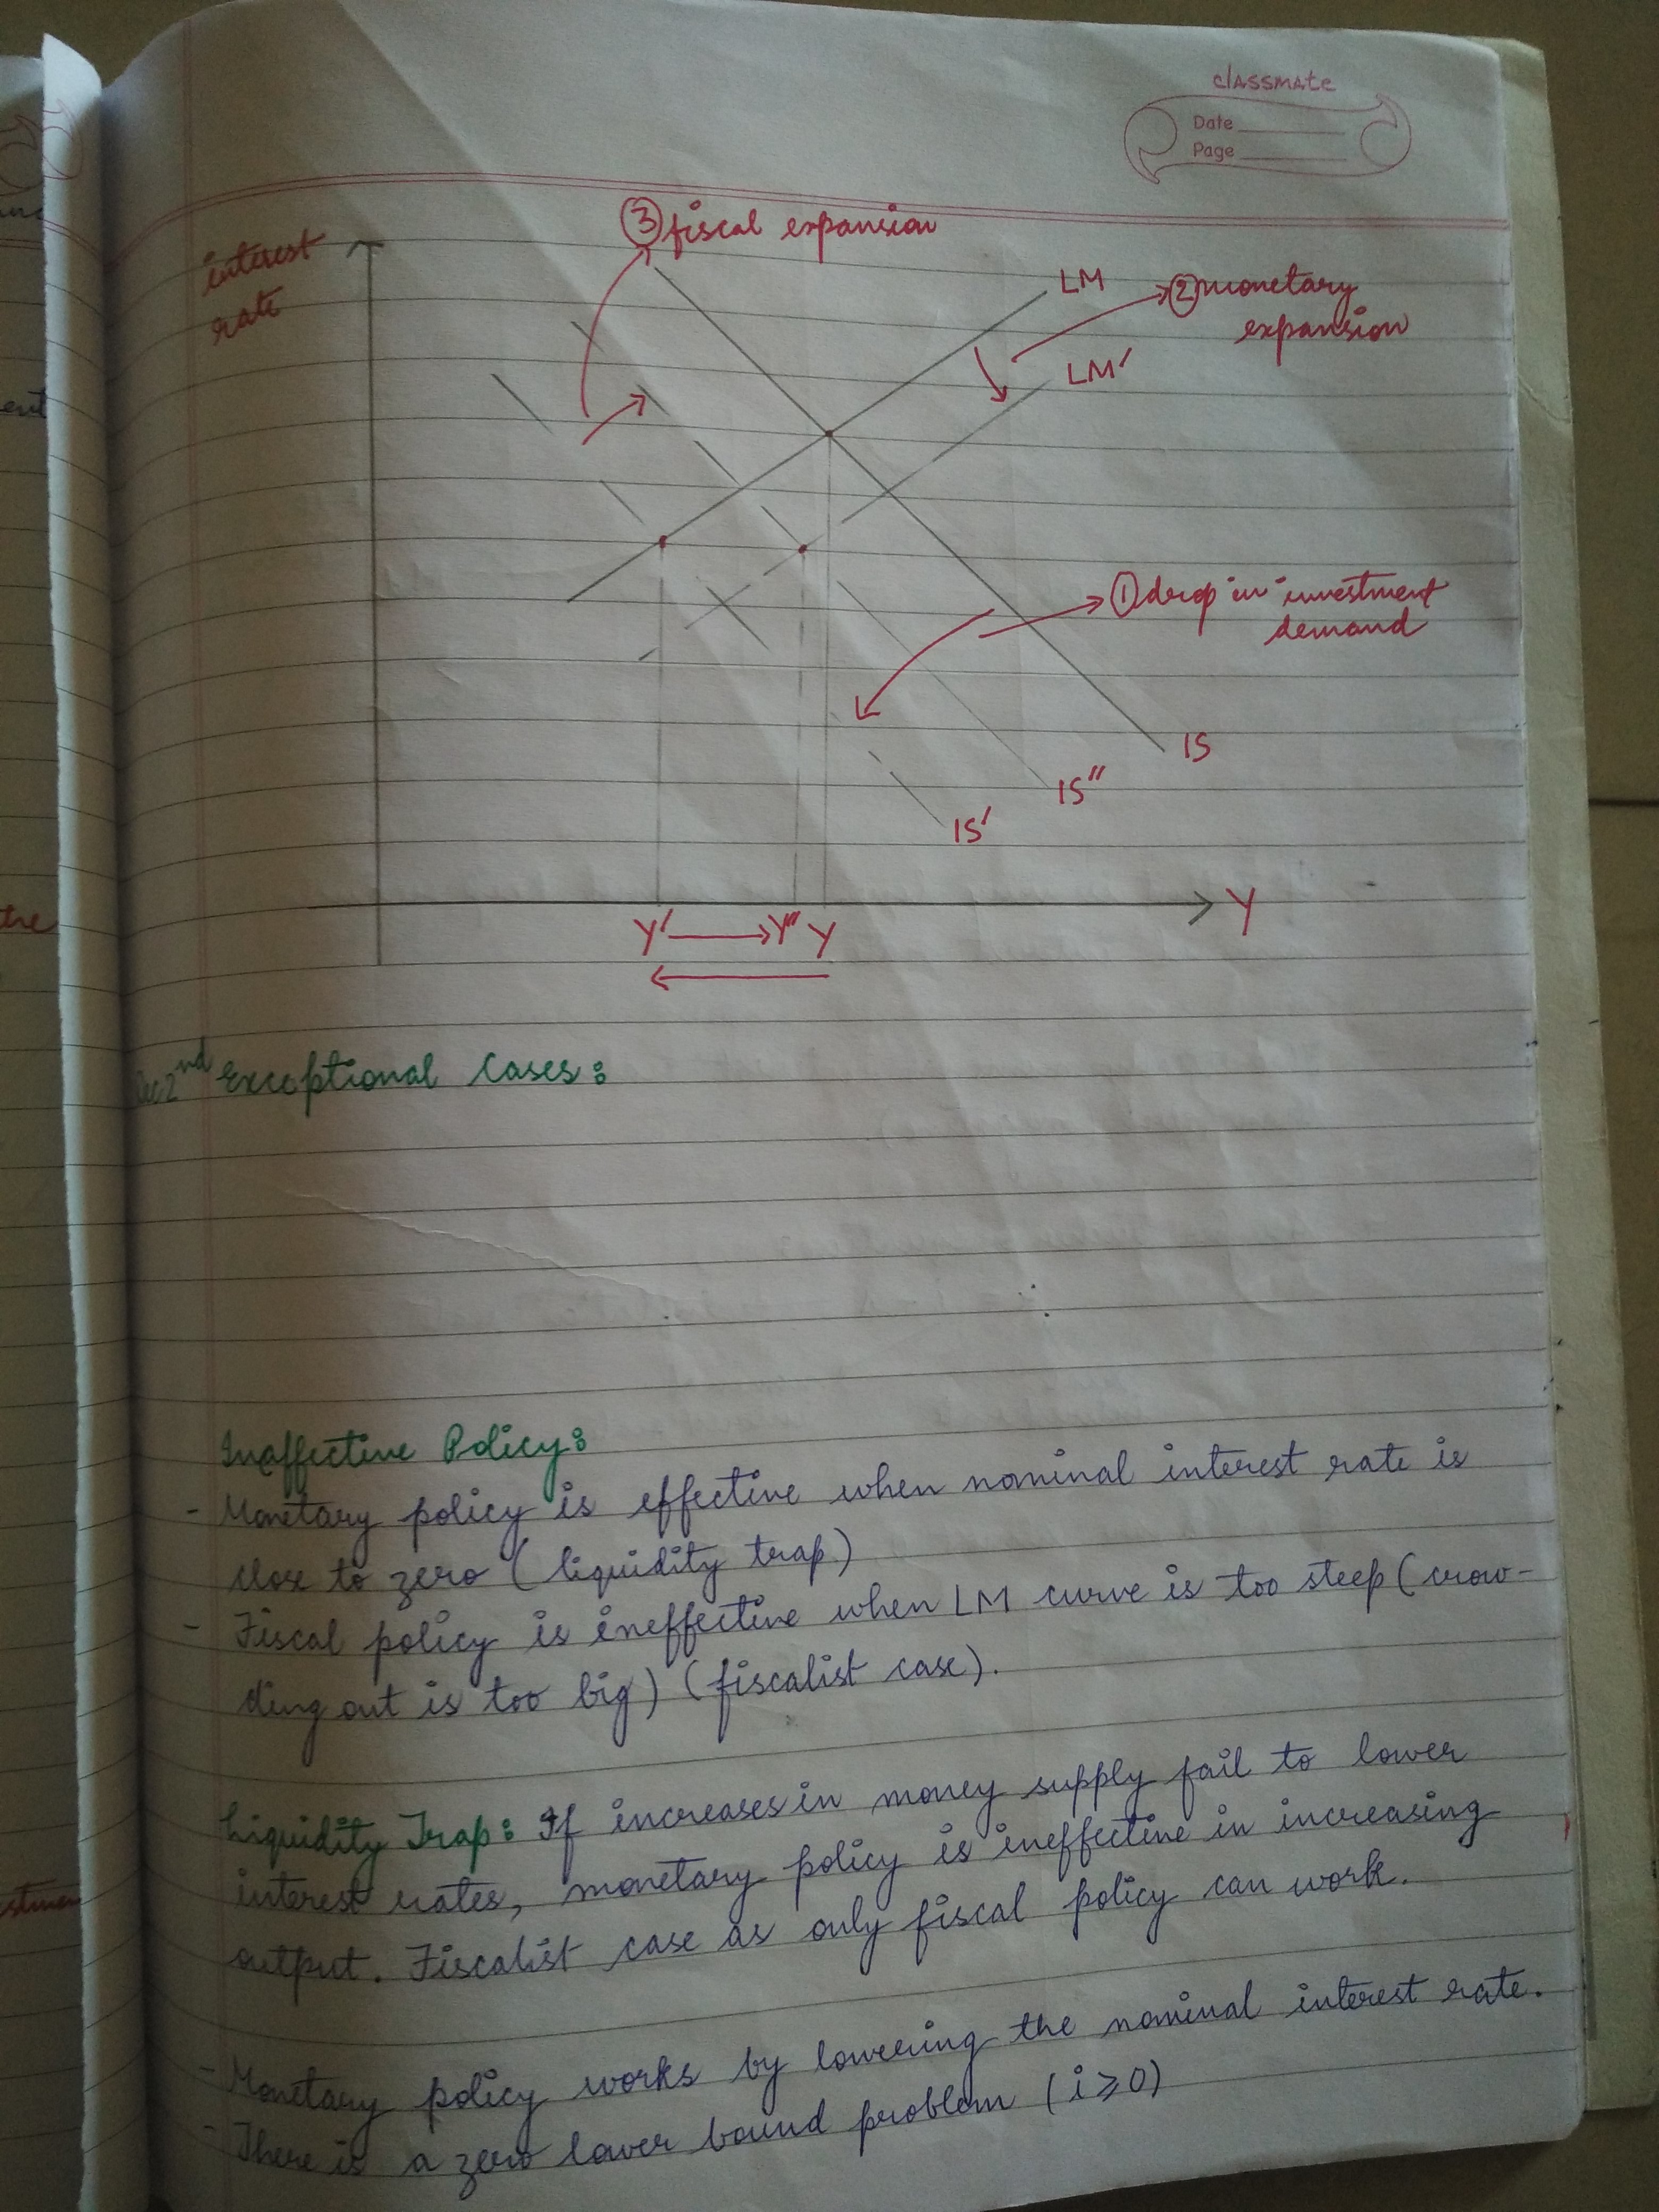 classmate
Date
Page
③ fiscal expansion
interest
rate
LM
② monetary
expansion
LM′
① drop in investment
demand
IS
IS″
IS′
Y′ → Y″ Y
Y
2nd Exceptional Cases:
Inaffective Policy:
- Monetary policy is effective when nominal interest rate is
close to zero (liquidity trap)
- Fiscal policy is ineffective when LM curve is too steep (crow-
ding out is too big) (fiscalist case).
Liquidity Trap: If increases in money supply fail to lower
interest rates, monetary policy is ineffective in increasing
output. Fiscalist case as only fiscal policy can work.
- Monetary policy works by lowering the nominal interest rate.
- There is a zero lower bound problem (i ≥ 0)